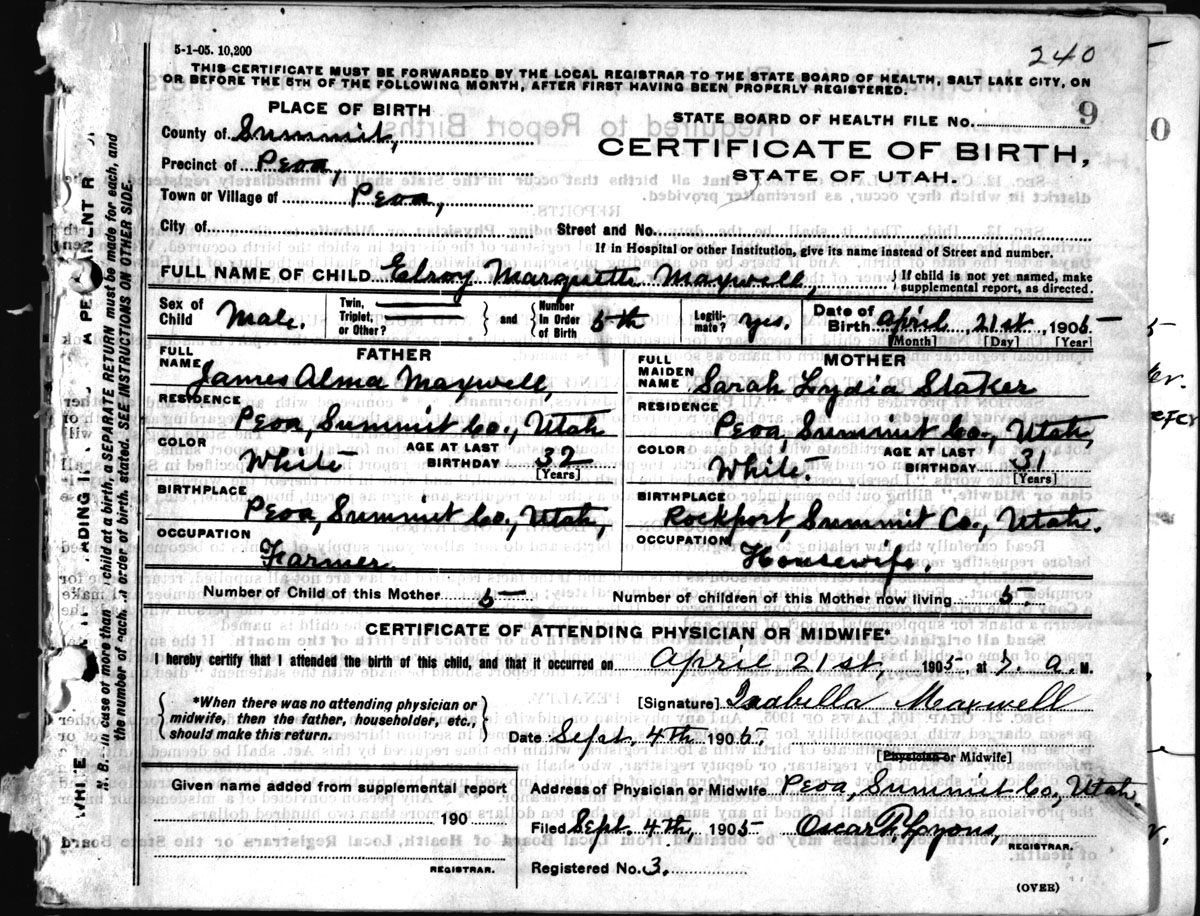 5-1-05. 10,200
240
THIS CERTIFICATE MUST BE FORWARDED BY THE LOCAL REGISTRAR TO THE STATE BOARD OF HEALTH, SALT LAKE CITY, ON
OR BEFORE THE 5TH OF THE FOLLOWING MONTH, AFTER FIRST HAVING BEEN PROPERLY REGISTERED.
PLACE OF BIRTH
STATE BOARD OF HEALTH FILE No. 9
County of Summit,
CERTIFICATE OF BIRTH,
Precinct of Peoa,
STATE OF UTAH.
Town or Village of Peoa,
City of Street and No.
If in Hospital or other Institution, give its name instead of Street and number.
FULL NAME OF CHILD Elroy Marquette Maxwell, { If child is not yet named, make supplemental report, as directed.
Sex of Child Male. Twin, Triplet, or Other? { and } Number in Order of Birth 5th Legitimate? yes. Date of Birth April 21st, 1905
[Month] [Day] [Year]
FATHER
MOTHER
FULL NAME James Alma Maxwell,
FULL MAIDEN NAME Sarah Lydia Staker
RESIDENCE Peoa, Summit Co., Utah
RESIDENCE Peoa, Summit Co., Utah,
COLOR White AGE AT LAST BIRTHDAY 32 [Years]
COLOR White. AGE AT LAST BIRTHDAY 31 [Years]
BIRTHPLACE Peoa, Summit Co., Utah,
BIRTHPLACE Rockport, Summit Co., Utah.
OCCUPATION Farmer.
OCCUPATION Housewife.
Number of Child of this Mother 5 Number of children of this Mother now living 5.
CERTIFICATE OF ATTENDING PHYSICIAN OR MIDWIFE*
I hereby certify that I attended the birth of this child, and that it occurred on April 21st, 1905 at 7. a. M.
*When there was no attending physician or midwife, then the father, householder, etc., should make this return.
[Signature] Izabella Maxwell
Date Sept. 4th 1905.
[Physician or Midwife]
Given name added from supplemental report
Address of Physician or Midwife Peoa, Summit Co., Utah.
190
Filed Sept. 4th, 1905 Oscar F. Lyons,
REGISTRAR.
REGISTRAR.
Registered No. 3.
(OVER)
N. B. In case of more than child at a birth, a SEPARATE RETURN must be made for each, and
the number of each, in order of birth, stated. SEE INSTRUCTIONS ON OTHER SIDE.